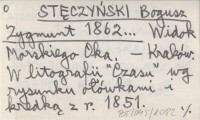 STĘCZYŃSKI Bogusz
Zygmunt 1862... Widok
Morskiego Oka. – Kraków.
W litografii "Czasu" wg
rysunku ołówkami i
kredką z r. 1851.